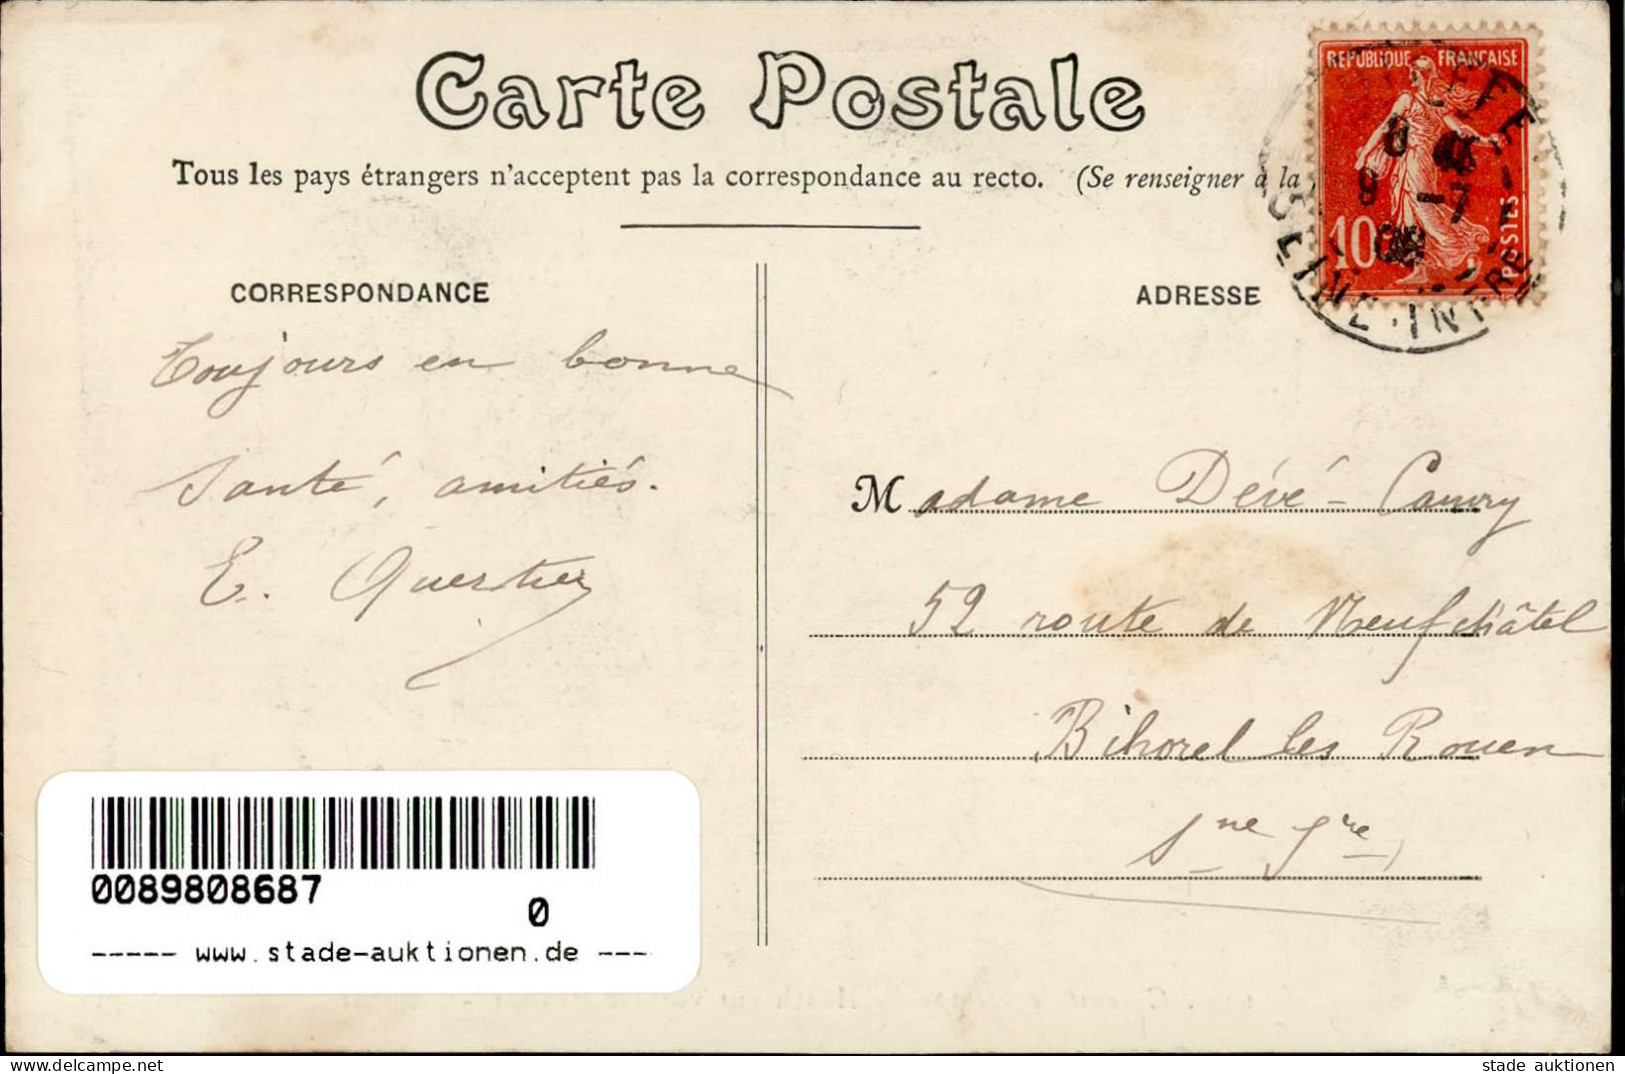 Carte Postale
Tous les pays étrangers n'acceptent pas la correspondance au recto. (Se renseigner à la
REPUBLIQUE FRANÇAISE
10c
POSTES
9 -7
08
SEINE-INFRE
CORRESPONDANCE
ADRESSE
Toujours en bonne
Santé, amitiés.
E. Quertier
Madame Dévé-Cauvry
52 route de Neufchâtel
Bihorel les Rouen
Sne Jre
0089808687
0
----- www.stade-auktionen.de ----
www.stade-auktionen.net
stade auktionen